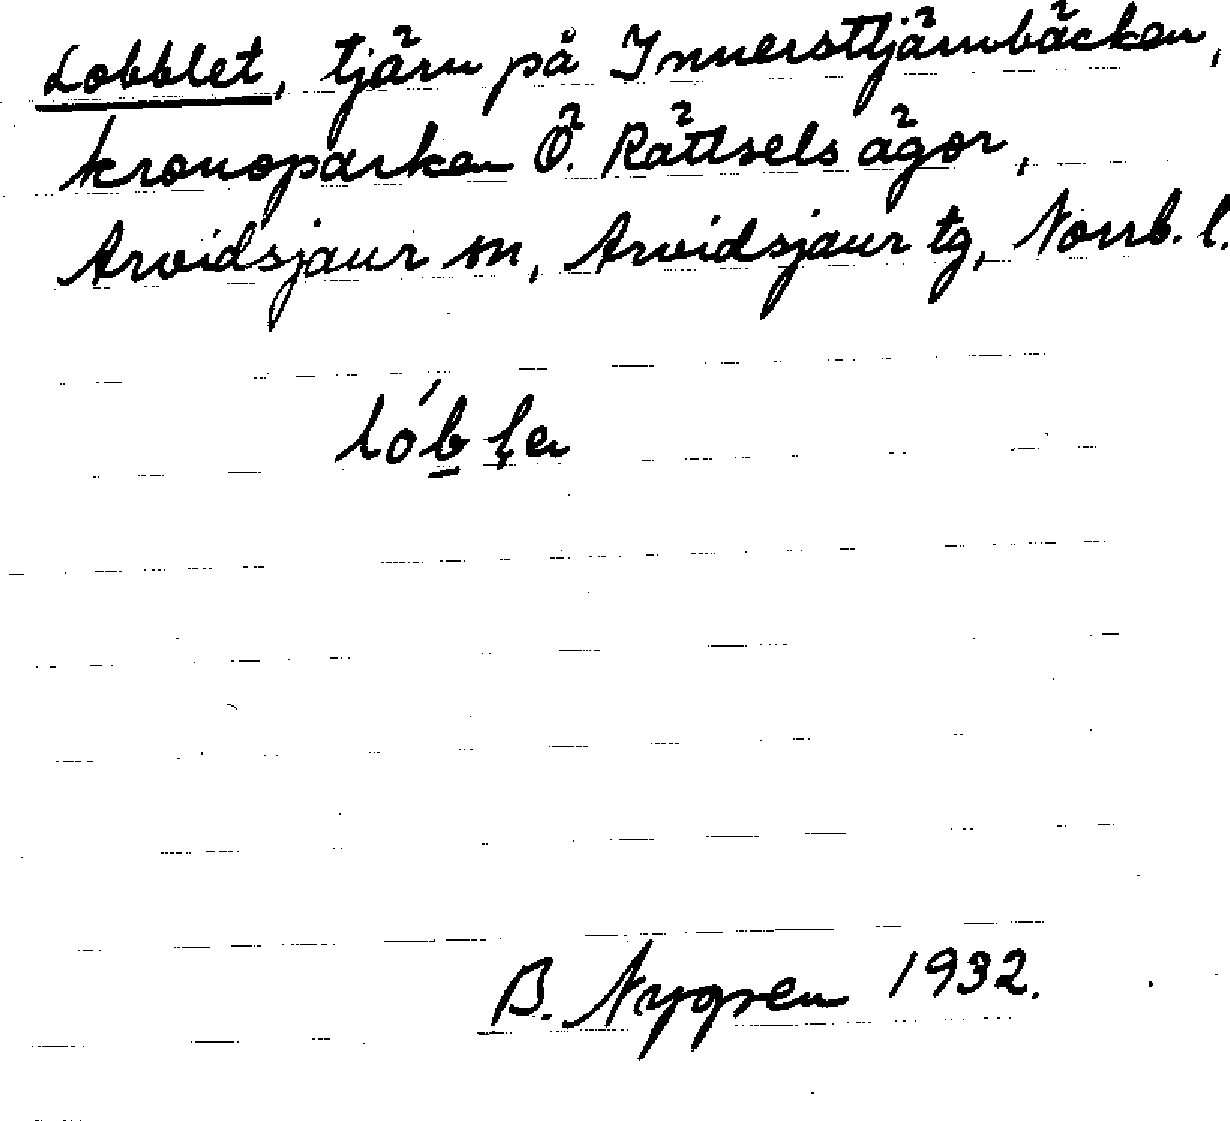 Lobblet, tjärn på Innersttjärnbäcken,
kronoparken Ö. Rättsels ägor,
Arvidsjaur sn, Arvidsjaur tg, Norrb. l.
B. Nygren 1932.